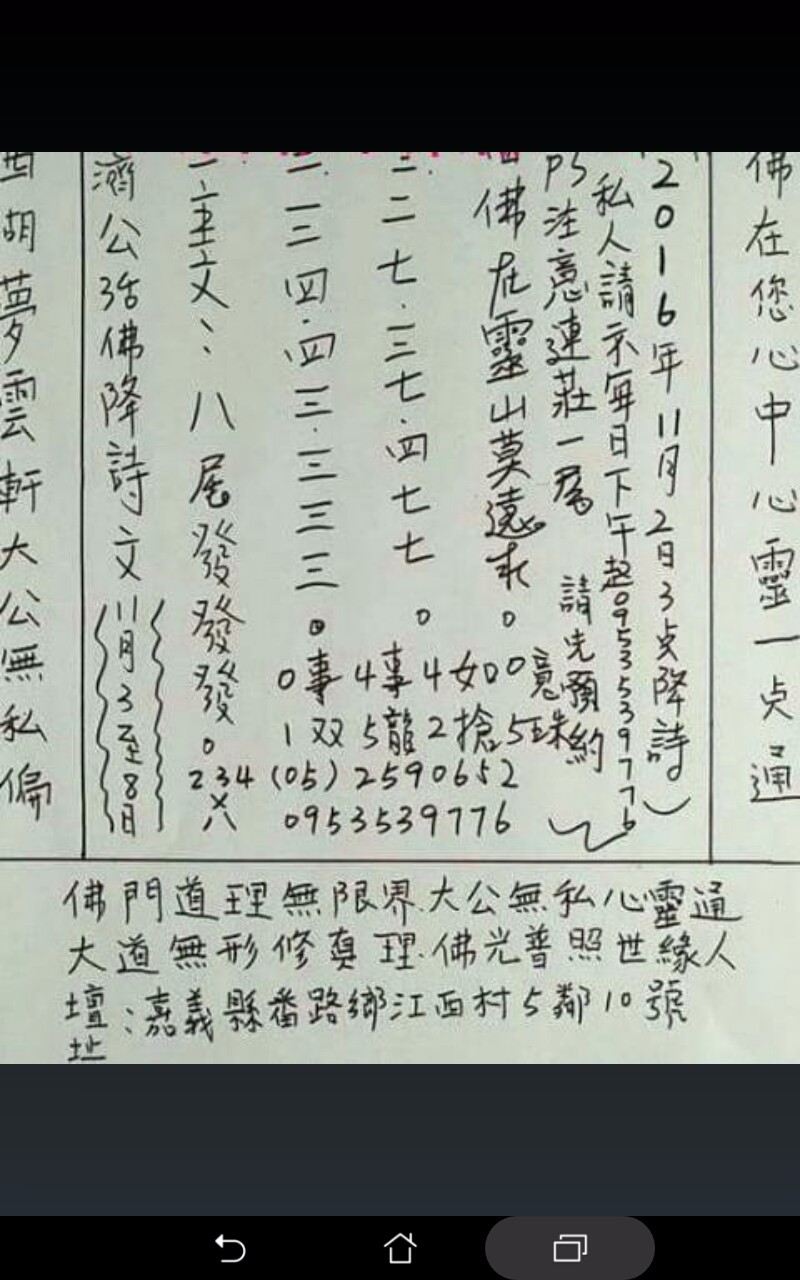 佛在您心中心靈一点通
2016年11月2日3点降詩
私人請示每日下午起0953539776
PS注意連莊一為 請先預約
佛在靈山莫遠求。竟珠
二二七.三七.四七七。
二三四.四三.三三三。
主文:八尾發發發。
0事4事4女00
1双5龍2搶5
234 (05)2590652
x八 0953539776
濟公活佛降詩文 11月3至8日
西湖夢雲軒大公無私偏
佛門道理無限界.大公無私心靈通
大道無形修真理.佛光普照世緣人
壇址:嘉義縣番路鄉江西村5鄰10號